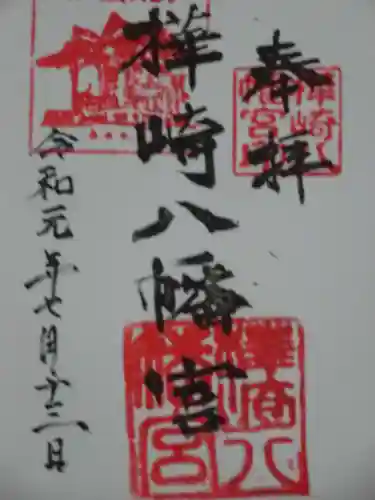 奉拝
樺崎八幡宮
令和元年七月十三日